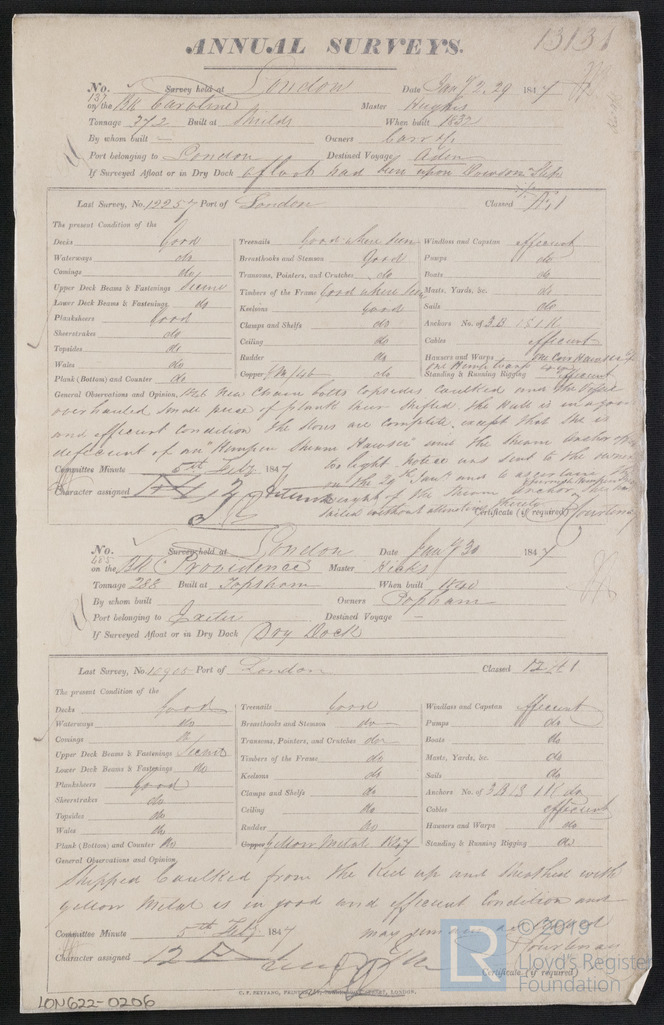 ANNUAL SURVEYS.
13131
No. 137 Survey held at London Date Jany 2. 29 1847
on the Bk Caroline Master Hughes
Tonnage 372 Built at Shields When built 1837
By whom built — Owners Carr &c
Port belonging to London Destined Voyage Aden
If Surveyed Afloat or in Dry Dock afloat had been upon Slip
Last Survey, No. 12257 Port of London Classed A1
The present Condition of the
Decks Good Treenails Good where seen Windlass and Capstan efficient
Waterways do Breasthooks and Stemson Good Pumps do
Comings do Transoms, Pointers, and Crutches do Boats do
Upper Deck Beams & Fastenings Secure Timbers of the Frame Good where seen Masts, Yards, &c. do
Lower Deck Beams & Fastenings do Keelsons Good Sails do
Planksheers Good Clamps and Shelfs do Anchors No. of 3B 1S 1K
Sheerstrakes do Ceiling do Cables efficient
Topsides do Rudder do Hawsers and Warps One Coir Hawser &
Wales do Copper do one Hemp
Plank (Bottom) and Counter do Standing & Running Rigging efficient
General Observations and Opinion, New Chain bolts topsides caulked and the
overhauled small piece of plank shifted. The Hull is in a good
and efficient condition the stores are complete except that she is
deficient of an "Hempen Stream Hawser" and the Stream Anchor
too light. Notice was sent to the owner
Committee Minute 5th Feby 1847
on the 29 Jany and to ascertain the
Character assigned A1 weight of the Stream Anchor
sailed without attending thereto
Certificate (if required) Courtenay
No. 485 Survey held at London Date Jany 30 1847
on the Bk Providence Master Hicks
Tonnage 288 Built at Topsham When built 1840
By whom built Owners Popham
Port belonging to Exeter Destined Voyage —
If Surveyed Afloat or in Dry Dock Dry Dock
Last Survey, No. 10905 Port of London Classed 12 A1
The present Condition of the
Decks Good Treenails Good Windlass and Capstan efficient
Waterways do Breasthooks and Stemson do Pumps do
Comings do Transoms, Pointers, and Crutches do Boats do
Upper Deck Beams & Fastenings Secure Timbers of the Frame do Masts, Yards, &c. do
Lower Deck Beams & Fastenings do Keelsons do Sails do
Planksheers Good Clamps and Shelfs do Anchors No. of 3B 1S 1K do
Sheerstrakes do Ceiling do Cables efficient
Topsides do Rudder do Hawsers and Warps do
Wales do Copper Yellow Metal 1847 Standing & Running Rigging do
Plank (Bottom) and Counter do
General Observations and Opinion,
Stripped Caulked from the Keel up and Sheathed with
yellow Metal is in good and efficient Condition and
may remain as Classed
Committee Minute 5th Feby 1847
Courtenay
Character assigned 12 A 1
Certificate (if required)
LON622-0206
LR
© 2019
Lloyd's Register
Foundation